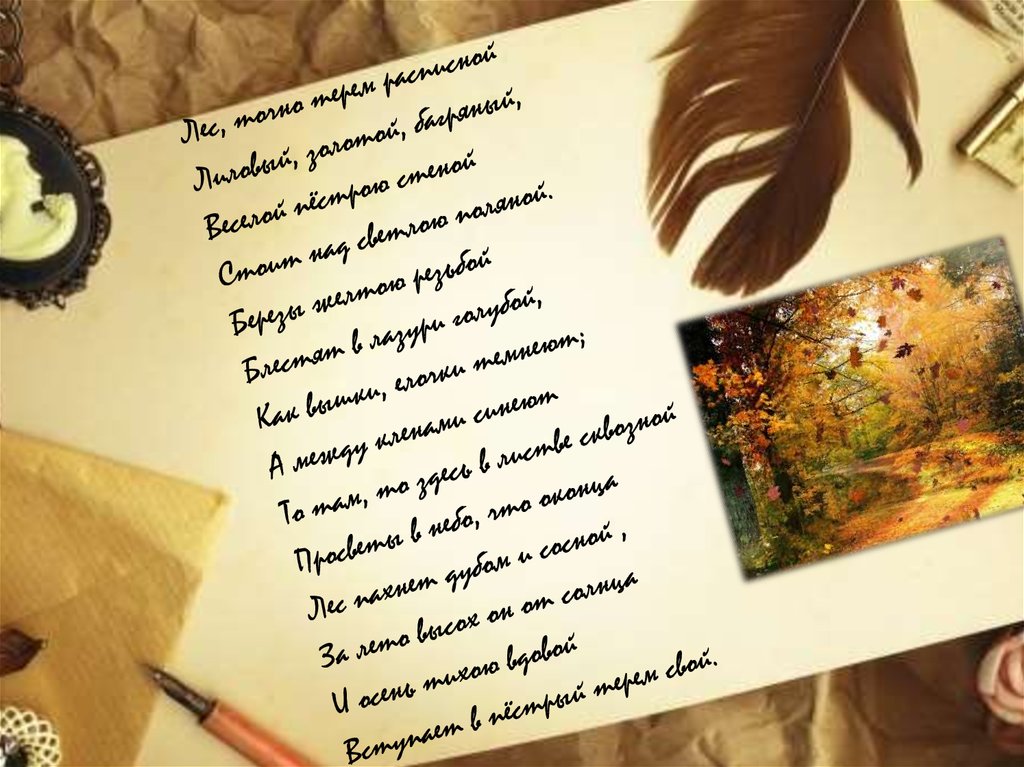 Лес, точно терем расписной
Лиловый, золотой, багряный,
Веселой пёстрою стеной
Стоит над светлою поляной.
Березы желтою резьбой
Блестят в лазури голубой,
Как вышки, елочки темнеют;
А между кленами синеют
То там, то здесь в листве сквозной
Просветы в небо, что оконца
Лес пахнет дубом и сосной ,
За лето высох он от солнца
И осень тихою вдовой
Вступает в пёстрый терем свой.